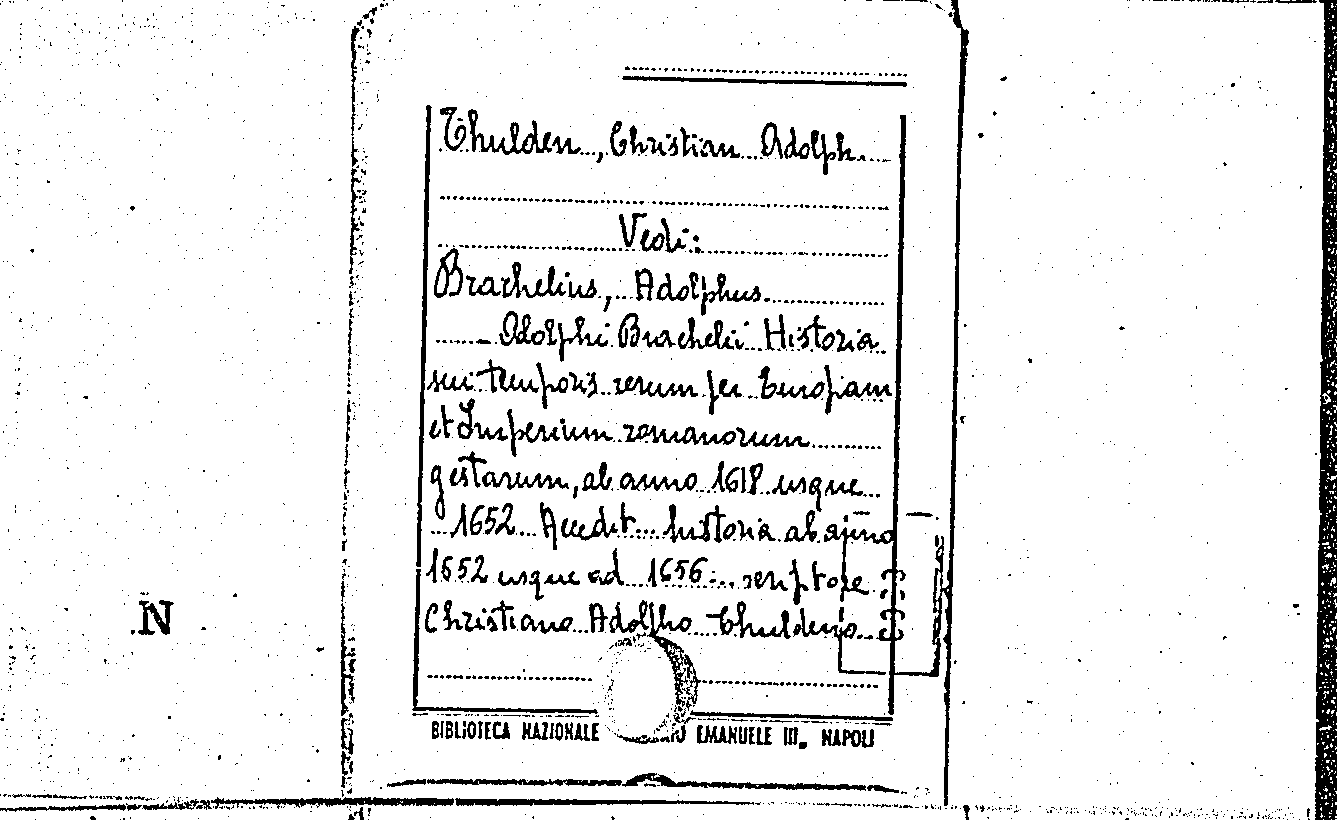 Thulden, Christian Adolph.
Vedi:
Brachelius, Adolphus.
- Adolphi Brachelii Historia
sui temporis rerum per Europam
et Imperium romanorum
gestarum, ab anno 1618 usque
1652 Accedit historia ab anno
1652 usque ad 1656: scriptore
Christiano Adolpho Thuldeno
N
BIBLIOTECA NAZIONALE EMANUELE III, NAPOLI